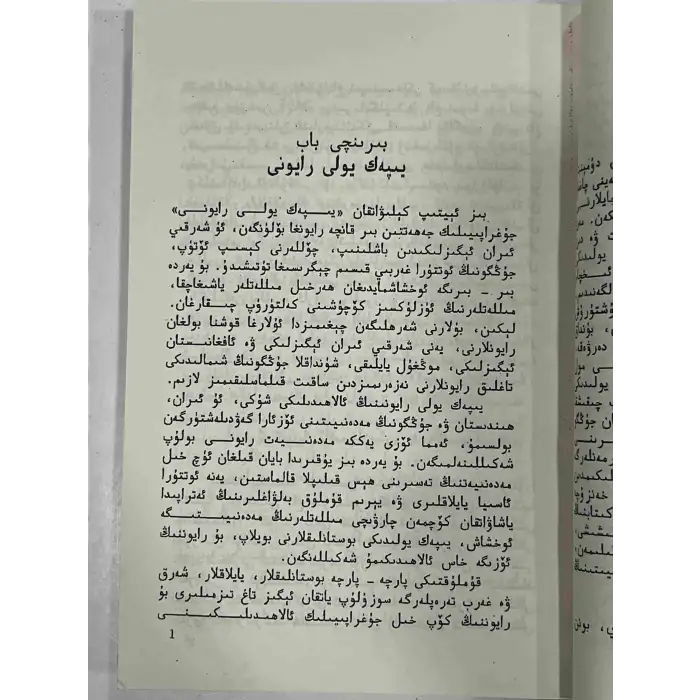 بىرىنچى باب
يىپەك يولى رايونى
بىز ئېيتىپ كېلىۋاتقان «يىپەك يولى رايونى»
جۇغراپىيىلىك جەھەتتىن بىر قانچە رايونغا بۆلۈنگەن، ئۇ شەرقىي
ئىران ئېگىزلىكىدىن باشلىنىپ، چۆللەرنى كېسىپ ئۆتۈپ،
جۇڭگونىڭ ئوتتۇرا غەربىي قىسىم چېگرىسىغا تۇتىشىدۇ. بۇ يەردە
بىر - بىرىگە ئوخشاشمايدىغان ھەرخىل مىللەتلەر ياشىغاچقا،
مىللەتلەرنىڭ ئۈزلۈكسىز كۆچۈشىنى كەلتۈرۈپ چىقارغان.
لېكىن، بۇلارنى شەرھلىگەن چېغىمىزدا ئۇلارغا قوشنا بولغان
رايونلارنى، يەنى شەرقىي ئىران ئېگىزلىكى ۋە ئافغانىستان
ئېگىزلىكى، موڭغۇل يايلىقى، شۇنداقلا جۇڭگونىڭ شىمالىدىكى
تاغلىق رايونلارنى نەزەرىمىزدىن ساقىت قىلماسلىقىمىز لازىم.
يىپەك يولى رايونىنىڭ ئالاھىدىلىكى شۇكى، ئۇ ئىران،
ھىندىستان ۋە جۇڭگونىڭ مەدەنىيىتىنى ئۆزئارا گەۋدىلەشتۈرگەن
بولسىمۇ، ئەمما ئۆزى يەككە مەدەنىيەت رايونى بولۇپ
شەكىللىنەلمىگەن. بۇ يەردە بىز يۇقىرىدا بايان قىلغان ئۈچ خىل
مەدەنىيەتنىڭ تەسىرىنى ھېس قىلىپلا قالماستىن، يەنە ئوتتۇرا
ئاسىيا يايلاقلىرى ۋە يېرىم قۇملۇق بەلۋاغلىرىنىڭ ئەتراپىدا
ياشاۋاتقان كۆچمەن چارۋىچى مىللەتلەرنىڭ مەدەنىيىتىگە
ئوخشاش، يىپەك يولىدىكى بوستانلىقلارنى بويلاپ، بۇ رايوننىڭ
ئۆزىگە خاس ئالاھىدىلىكىمۇ شەكىللەنگەن.
قۇملۇقتىكى پارچە - پارچە بوستانلىقلار، يايلاقلار، شەرق
ۋە غەرب تەرەپلەرگە سوزۇلۇپ ياتقان ئېگىز تاغ تىزمىلىرى بۇ
رايوننىڭ كۆپ خىل جۇغراپىيىلىك ئالاھىدىلىكىنى
1